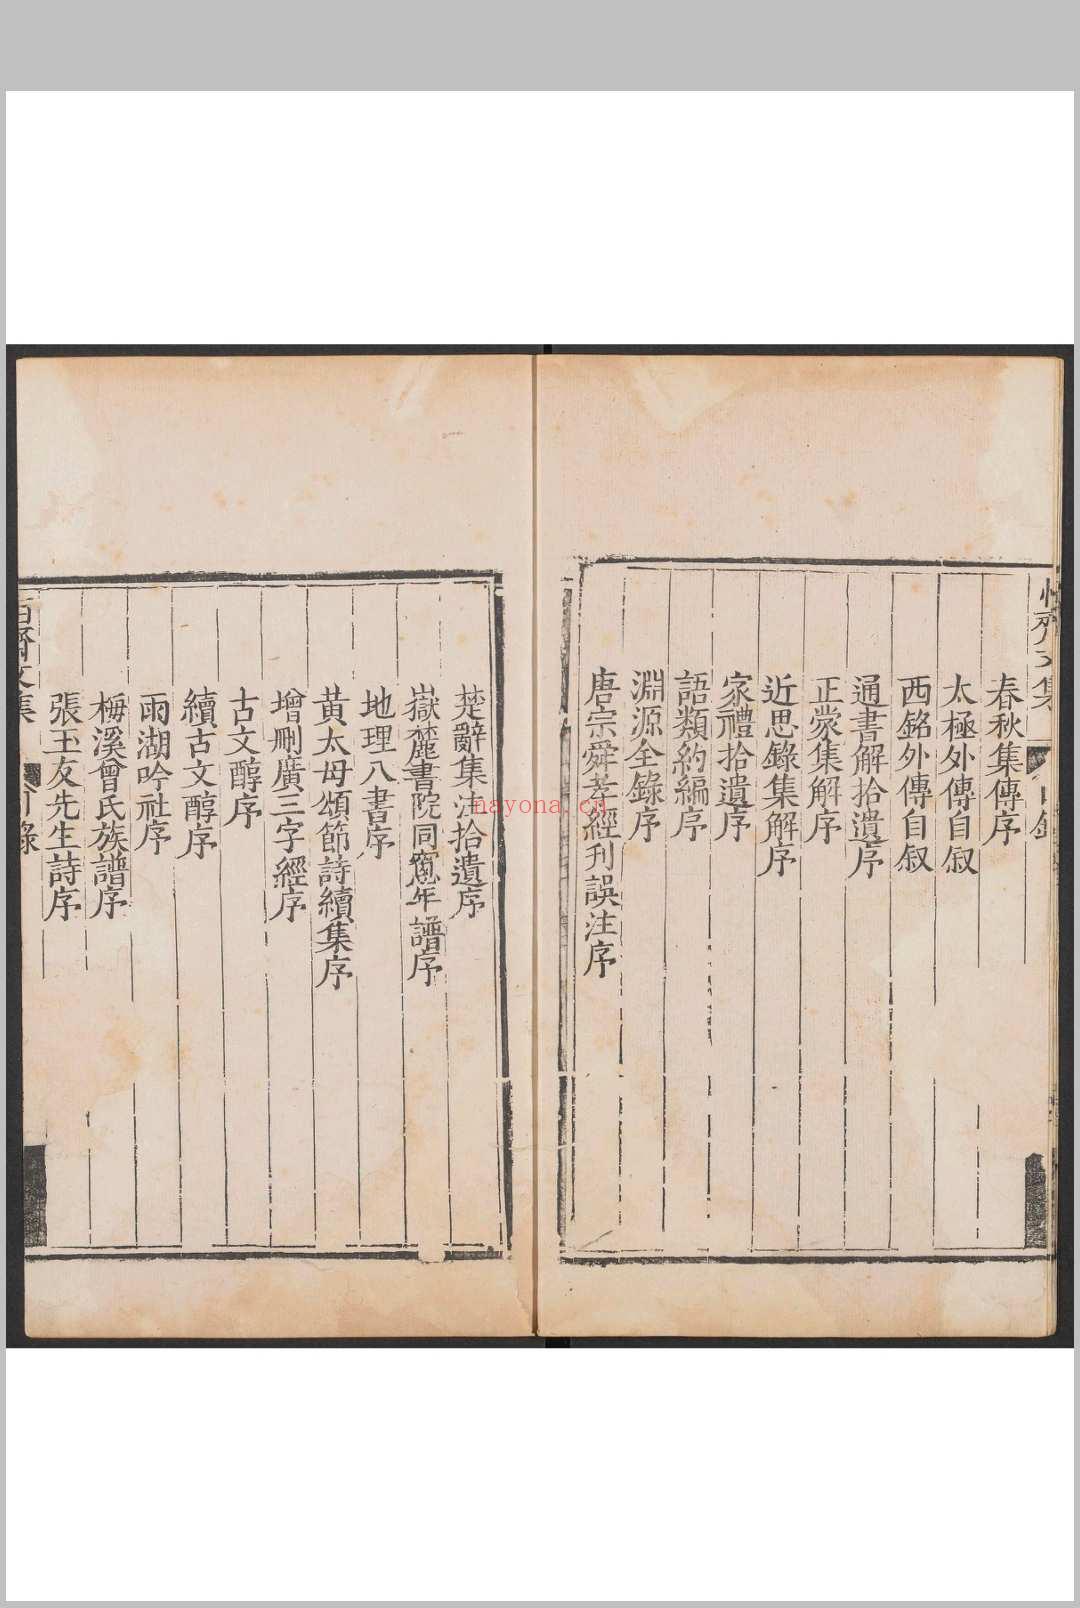 春秋集傳序
太極外傳自叙
西銘外傳自叙
通書解拾遺序
正蒙集解序
近思錄集解序
家禮拾遺序
語類約編序
淵源全錄序
唐宗舜孝經刊誤注序
楚辭集注拾遺序
嶽麓書院同寬年譜序
地理八書序
黃太母頌節詩續集序
增刪廣三字經序
古文醇序
續古文醇序
兩湖吟社序
梅溪曾氏族譜序
張玉友先生詩序
nayona.cn